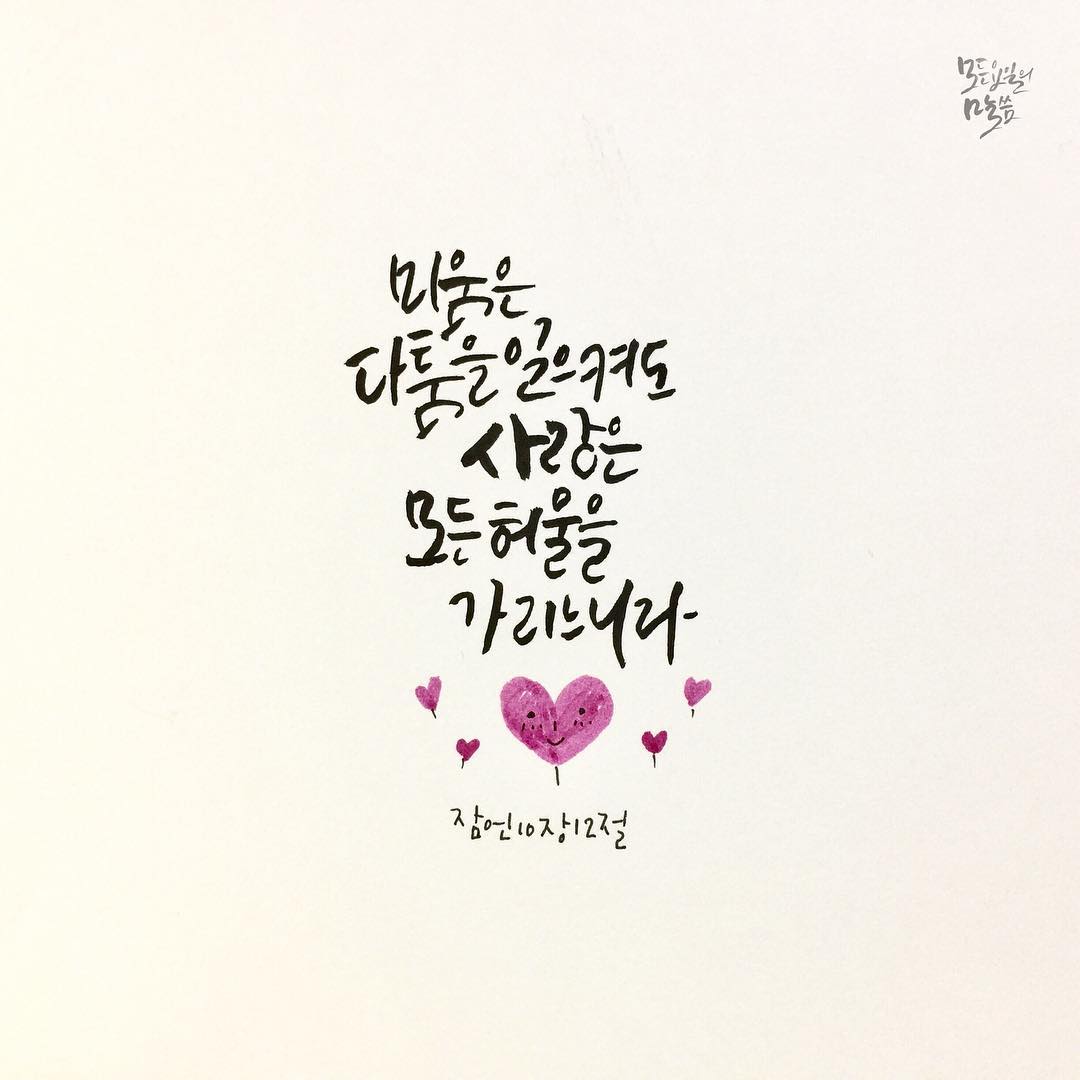 모든요일의
말씀
미움은
다툼을 일으켜도
사랑은
모든 허물을
가리느니라
잠언 10장 12절